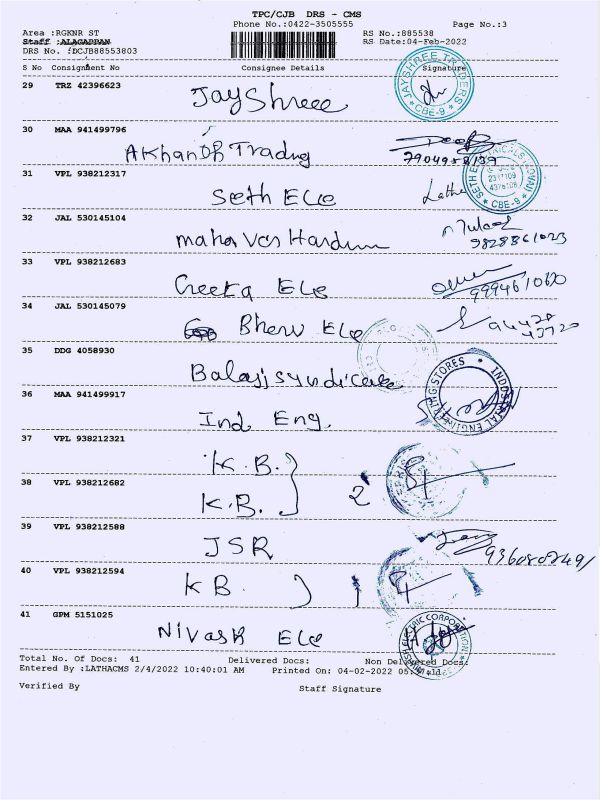 TPC/CJB DRS - CMS
Phone No.:0422-3505555
Page No.:3
Area :RGKNR ST
RS No.:885538
Staff :ALAGAPPAN
RS Date:04-Feb-2022
DRS No. :DCJB88553803
S No Consignment No Consignee Details Signature
29 TRZ 42396623 JayShree
JAYSHREE TRADERS
* CBE-9 *
30 MAA 941499796
Akhandh Trading
31 VPL 938212317
Seth Ele Latha
* CBE-9 *
32 JAL 530145104
9828861023
33 VPL 938212683
Geeta Ele
34 JAL 530145079
Bheru Ele
35 DDG 4058930
Balaji Syndicate
36 MAA 941499917
Ind Eng.
INDUSTRIAL ENGINEERING STORES
37 VPL 938212321
K.B.
38 VPL 938212682
K.B. 2
39 VPL 938212588
JSR
40 VPL 938212594
KB.
41 GPM 5151025
Nivash Ele
ELECTRIC CORPORATION
Total No. Of Docs: 41 Delivered Docs: Non Delivered Docs:
Entered By :LATHACMS 2/4/2022 10:40:01 AM Printed On: 04-02-2022
Verified By Staff Signature